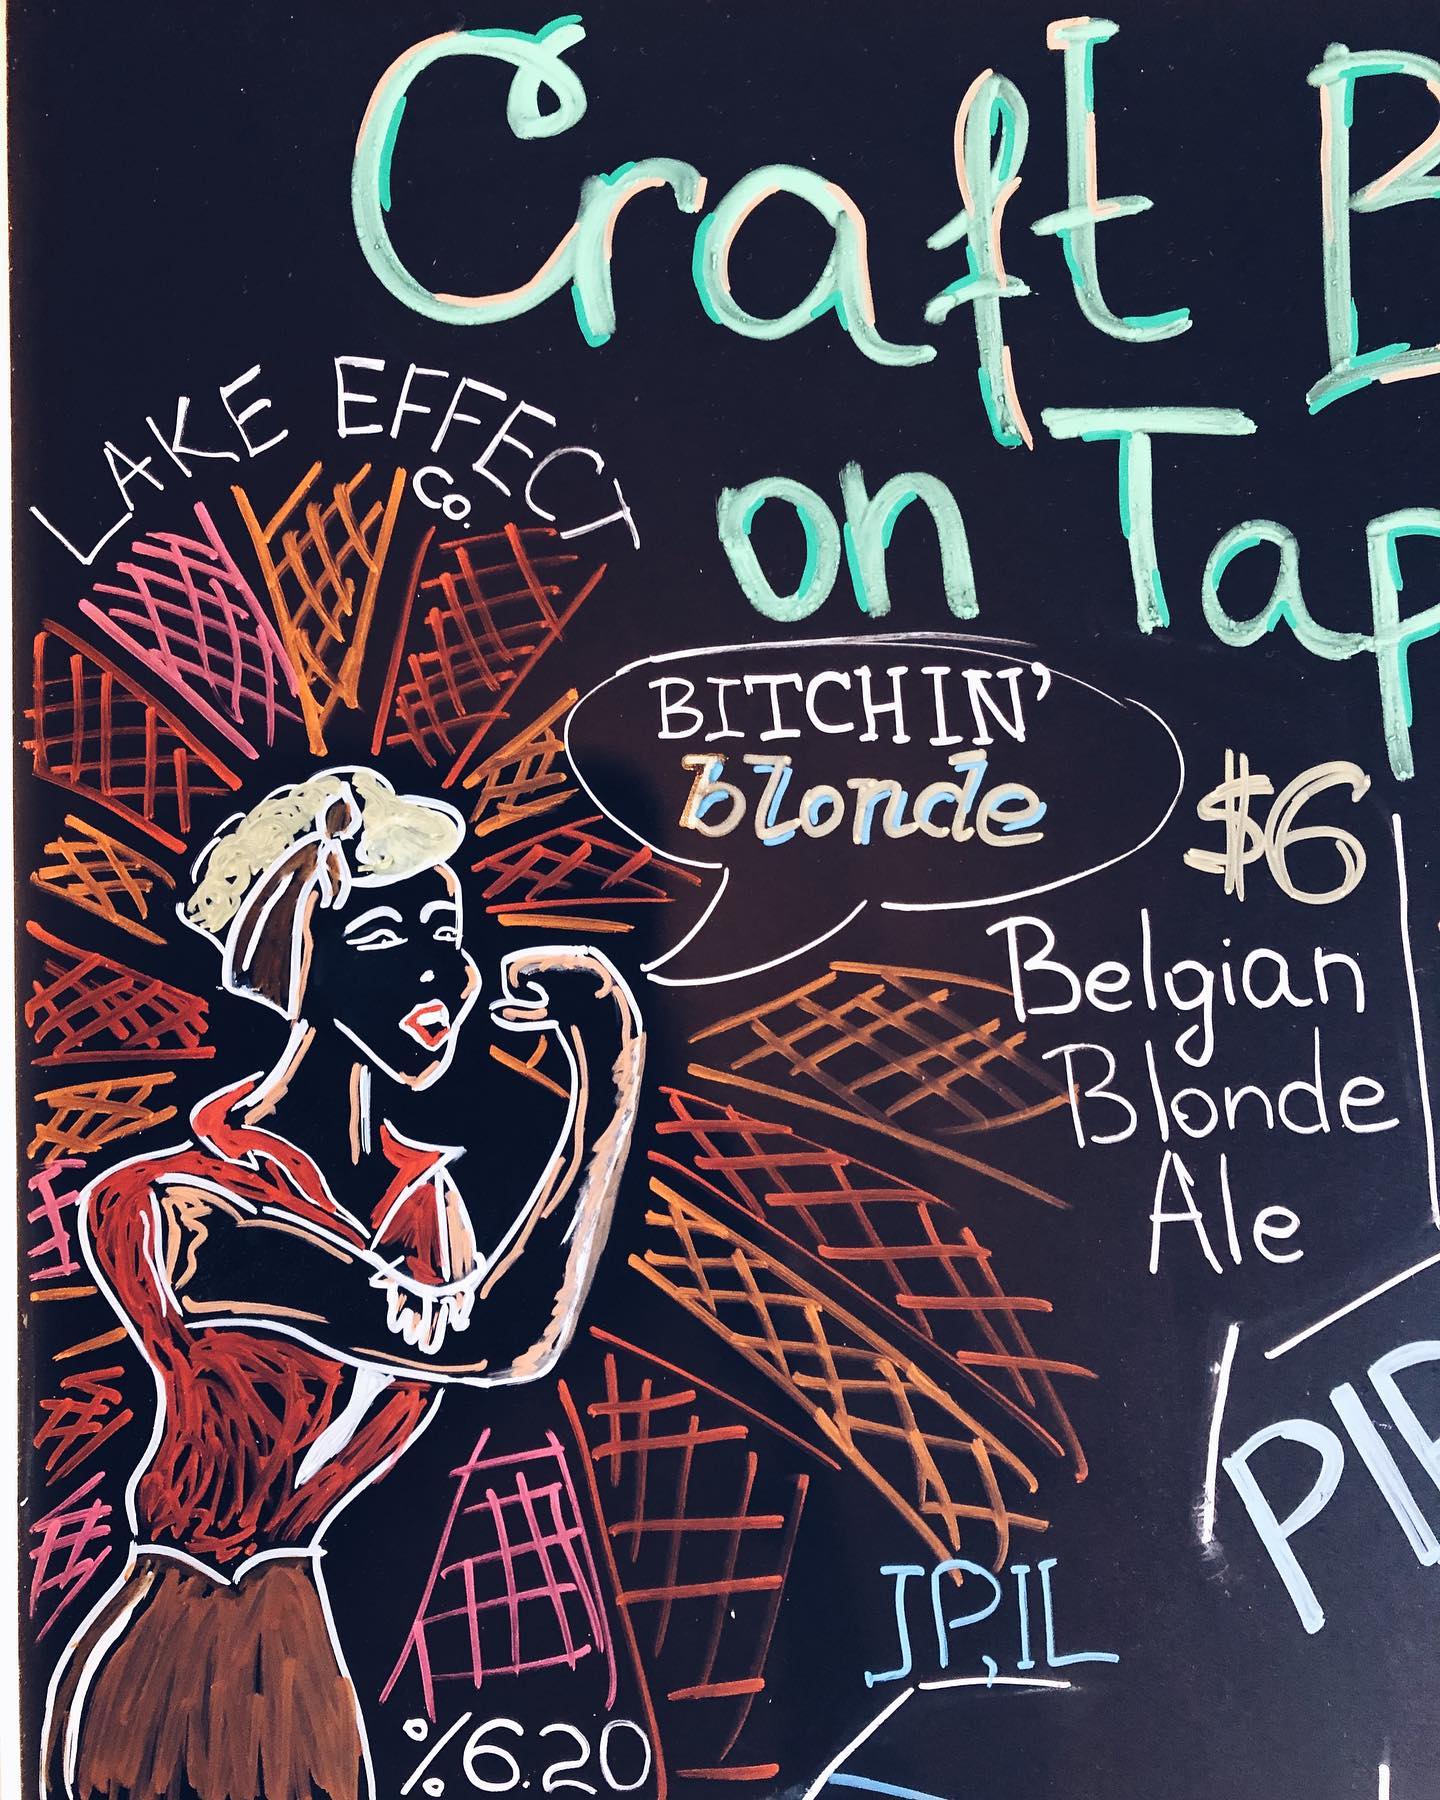 Craft B
on Tap
LAKE EFFECT
Co.
BITCHIN'
blonde
$6
Belgian
Blonde
Ale
PI
JP, IL
%6.20